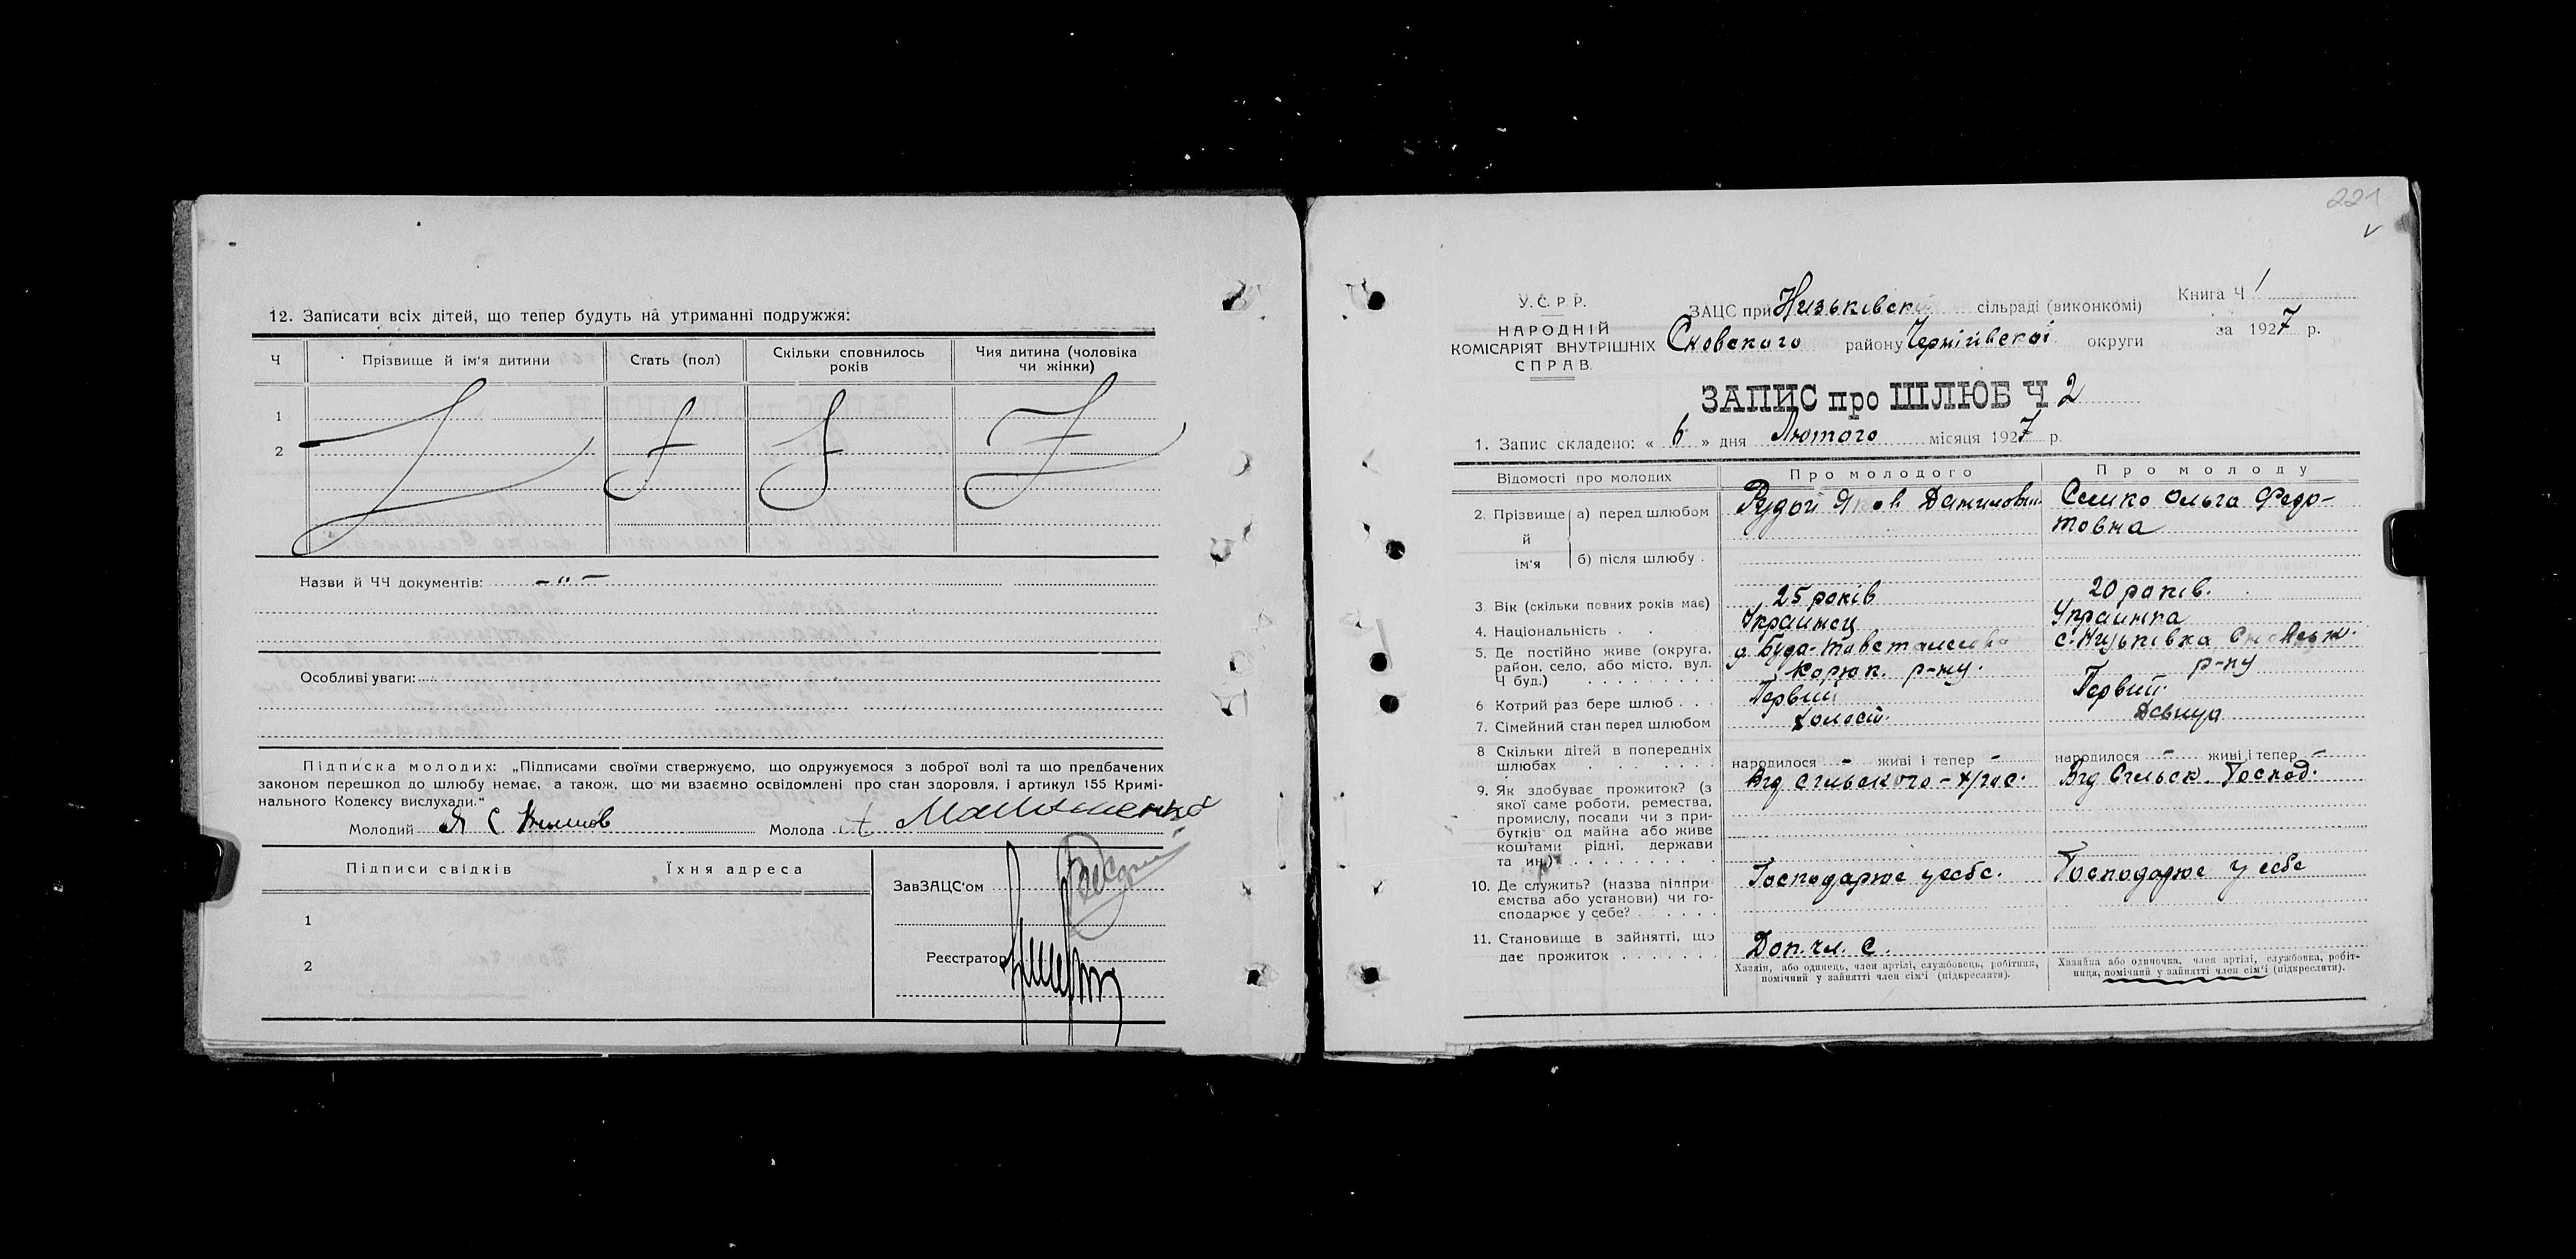 12. Записати всіх дітей, що тепер будуть на утриманні подружжя:
Ч Прізвище й ім'я дитини Стать (пол) Скільки сповнилось років Чия дитина (чоловіка чи жінки)
1
2
Назви й ЧЧ документів: —„—
Особливі уваги:
Підписка молодих: „Підписами своїми ствержуємо, що одружуємося з доброї волі та що предбачених
законом перешкод до шлюбу немає, а також, що ми взаємно освідомлені про стан здоров'я, і артикул 155 Кримі-
нального Кодексу вислухали."
Молодий Молода
Підписи свідків Їхня адреса
ЗавЗАЦС'ом
1
Реєстратор
2
221
У. С. Р. Р.
НАРОДНІЙ
КОМІСАРІЯТ ВНУТРІШНІХ
СПРАВ.
ЗАЦС при Низьківск сільраді (виконкомі)
Книга Ч 1
Сновского району Чернігівскоі округи
за 1927 р.
ЗАПИС про ШЛЮБ Ч 2
1. Запис складено: « 6 » дня Лютого місяця 1927 р.
Відомості про молодих Про молодого Про молоду
2. Прізвище й ім'я а) перед шлюбом Рудой Яков Данилович Семко Ольга Федо-
товна
б) після шлюбу .
3. Вік (скільки повних років має) 25 років 20 років.
4. Національність . . Украинец Украинка
5. Де постійно живе (округа, район, село, або місто, вул. Ч буд.) Буда- Корюк. р-ну. с. Низьківка Сновськ. р-ну
6 Котрий раз бере шлюб . . . Первий Первий.
7. Сімейний стан перед шлюбом Холост. Девица
8 Скільки дітей в попередніх шлюбах народилося - живі і тепер - народилося - живі і тепер -
9. Як здобуває прожиток? (з якої саме роботи, ремества, промислу, посади чи з прибутків од майна або живе коштами рідні, держави та ин.) Від сільского-х/гос. Від Сільск. Господ.
10. Де служить? (назва підпри-ємства або установи) чи го-сподарює у себе? Господарює у себе. Господарює у себе
11. Становище в зайнятті, що дає прожиток Доп. чл. С.
Хазяїн, або одинець, член артілі, службовець, робітник,
помічний у зайнятті член сім'ї (підкреслити).
Хазяйка або одиночка, член артілі, службовка, робіт-
ниця, помічний у зайнятті член сім'ї (підкреслити).